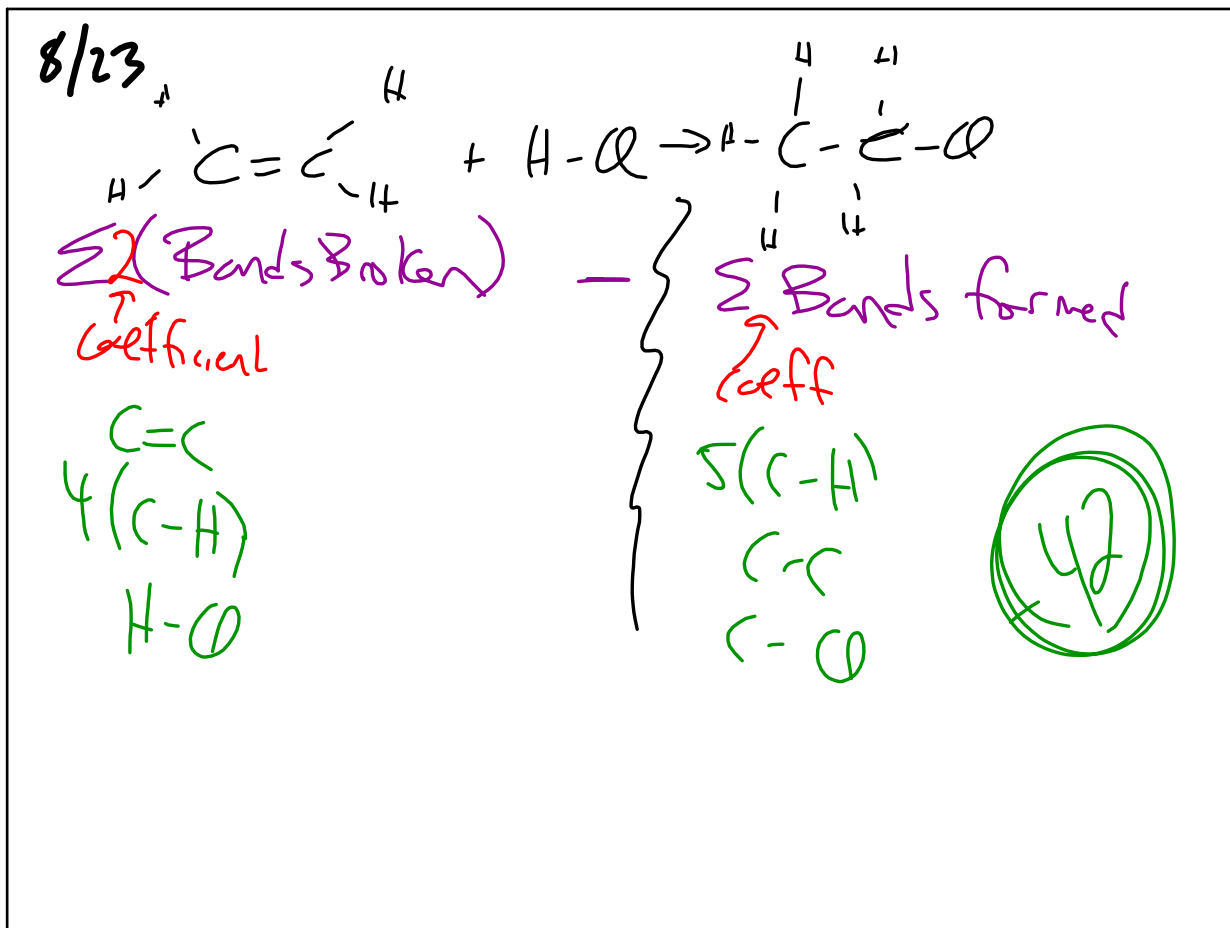 8/23
H H H H
H C = C + H - Cl → H - C - C - Cl
H H H
Σ 2 (Bonds Broken) - Σ Bonds formed
↑ Coefficient Coeff
C=C 5(C-H)
4(C-H) C-C
H-Cl C-Cl
42